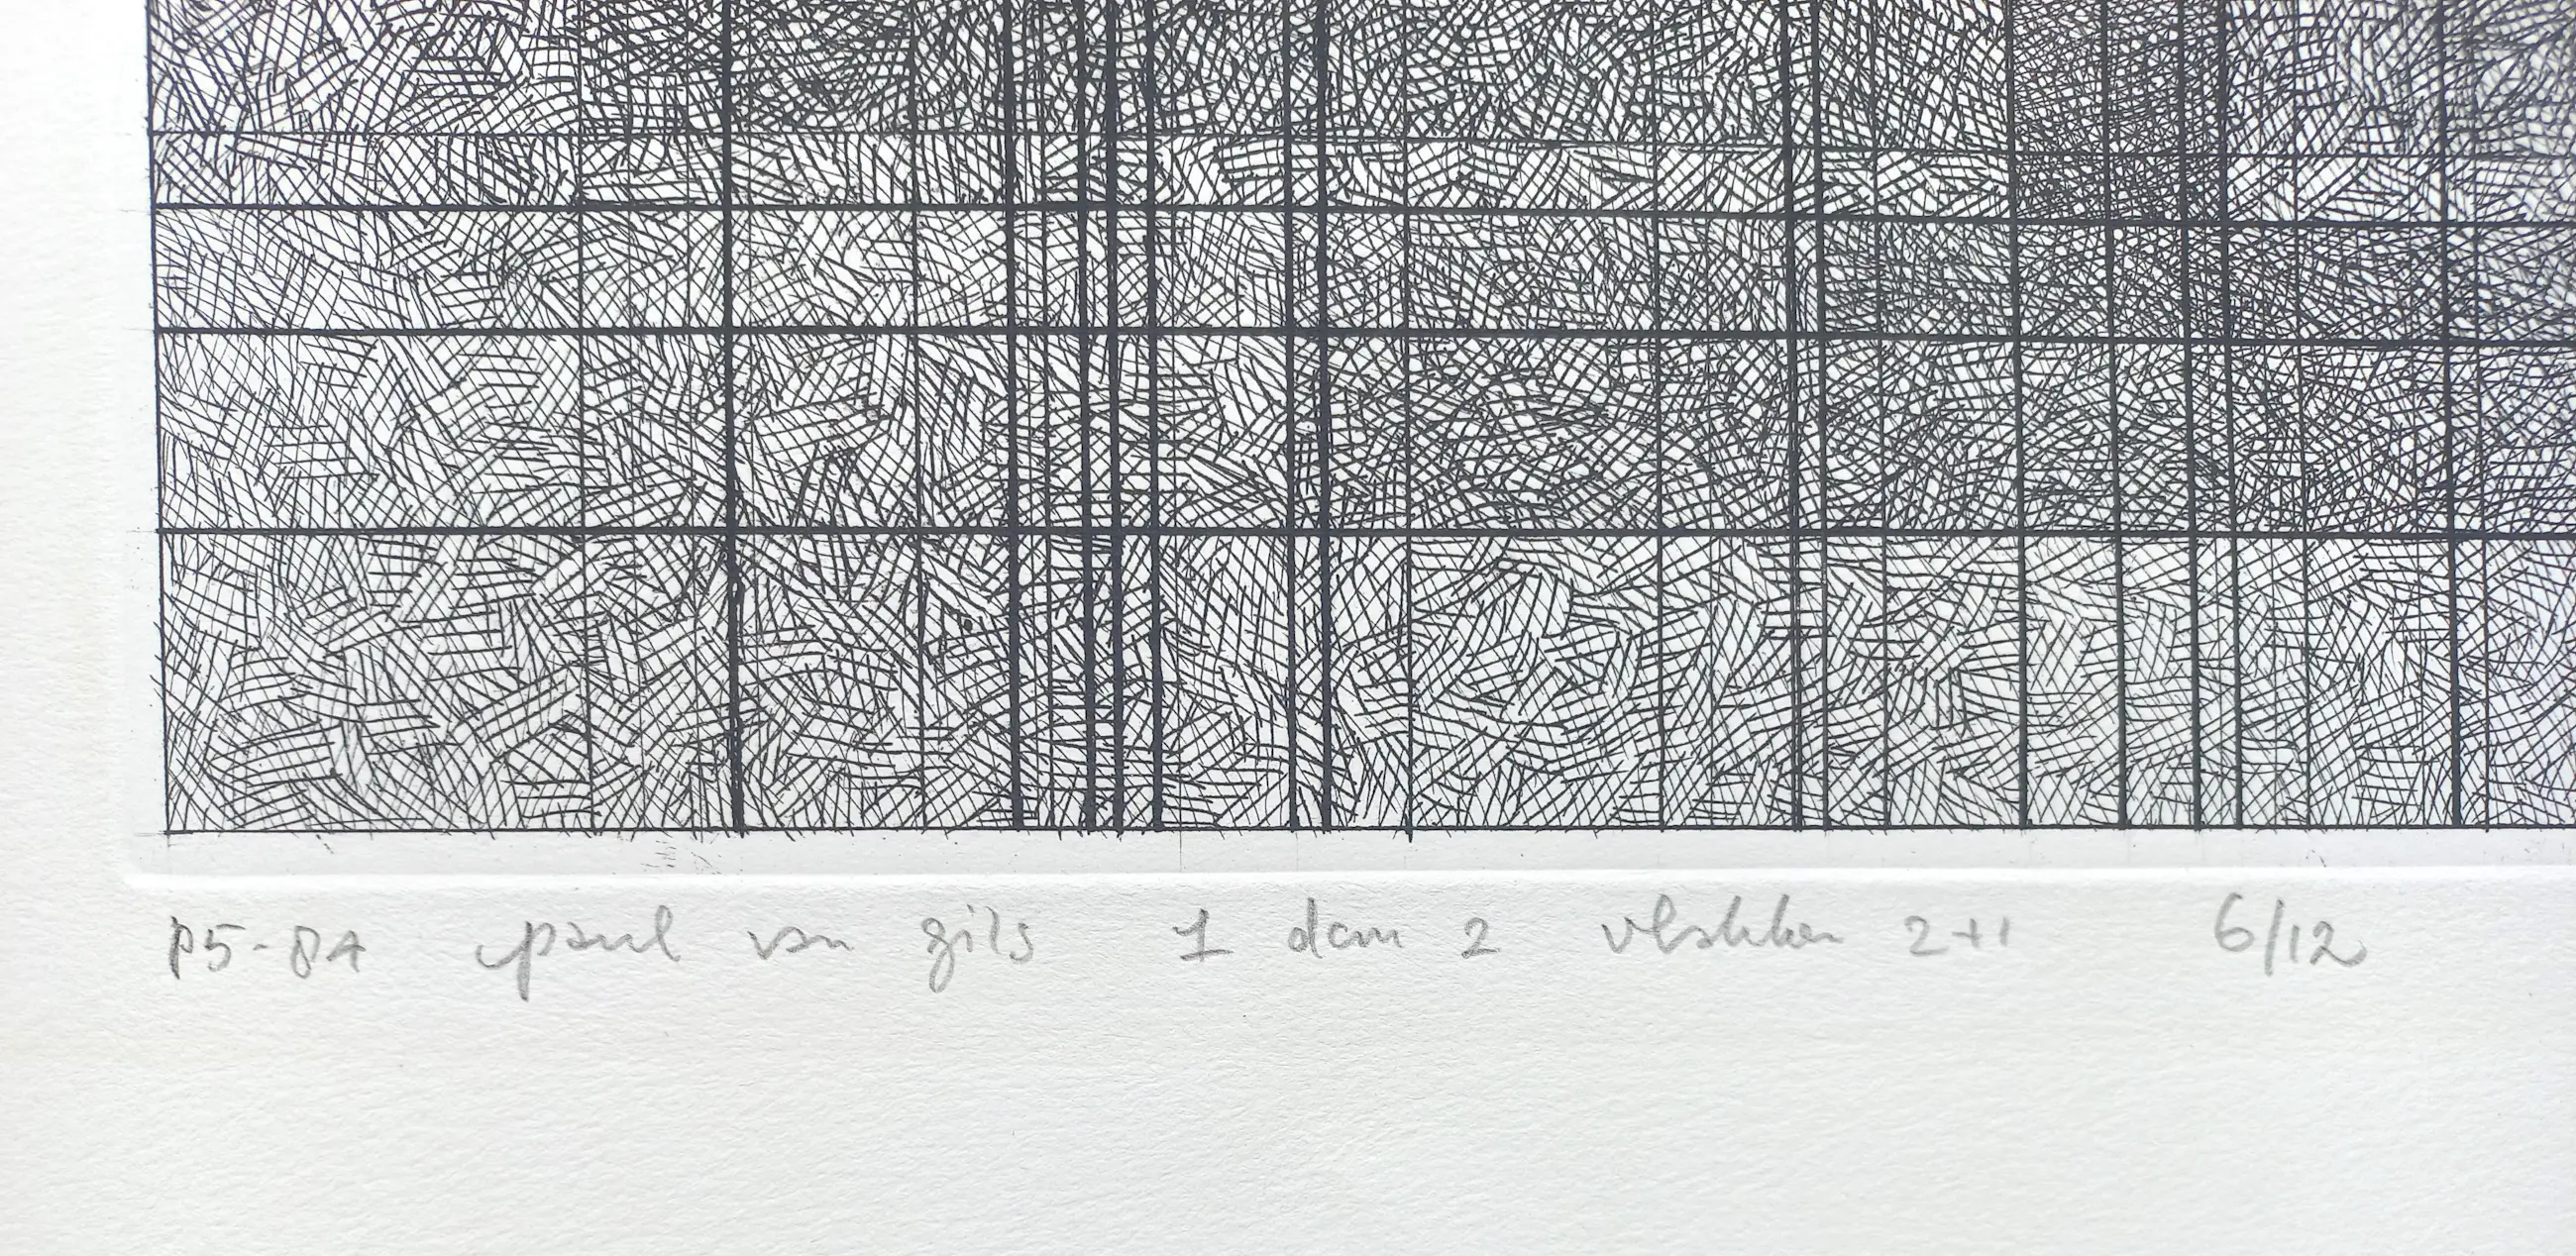 P5-84 paul van gils 1 dan 2 vlakken 2+1 6/12